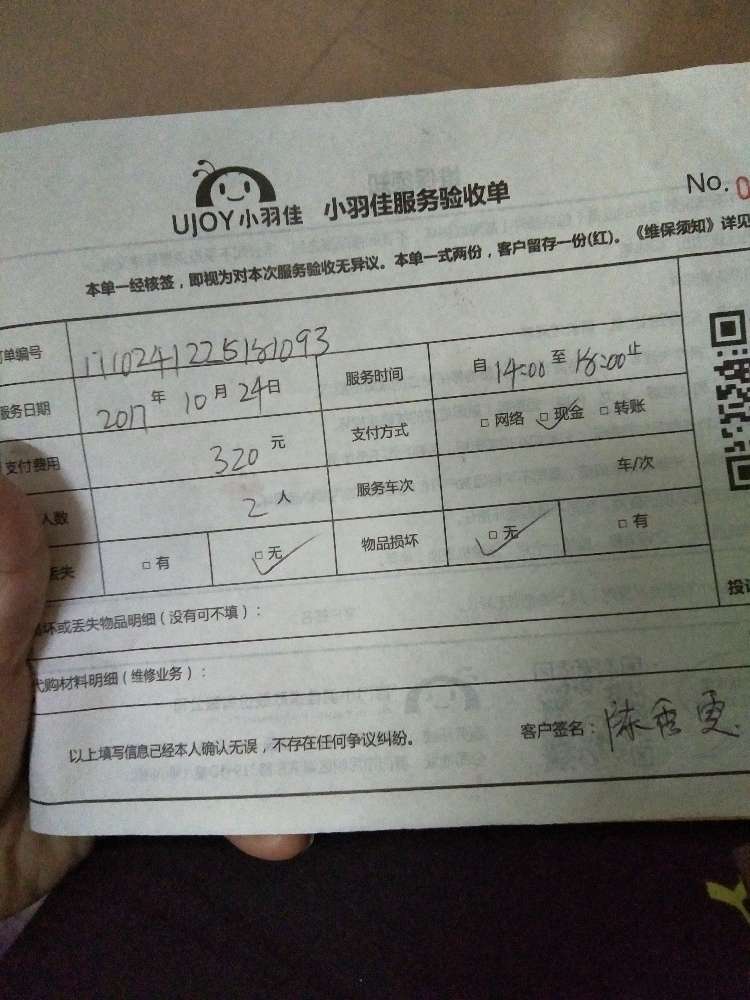 UJOY小羽佳 小羽佳服务验收单 No. 0
本单一经核签，即视为对本次服务验收无异议。本单一式两份，客户留存一份(红)。《维保须知》详见
单编号
服务日期 2017年 10月 24日 服务时间 自 14:00 至 18:00 止
支付费用 320 元 支付方式 □ 网络 □ 现金 □ 转账
人数 2 人 服务车次 车/次
丢失 □ 有 □ 无 物品损坏 □ 无 □ 有
坏或丢失物品明细（没有可不填）：
投诉
代购材料明细（维修业务）：
以上填写信息已经本人确认无误，不存在任何争议纠纷。 客户签名：